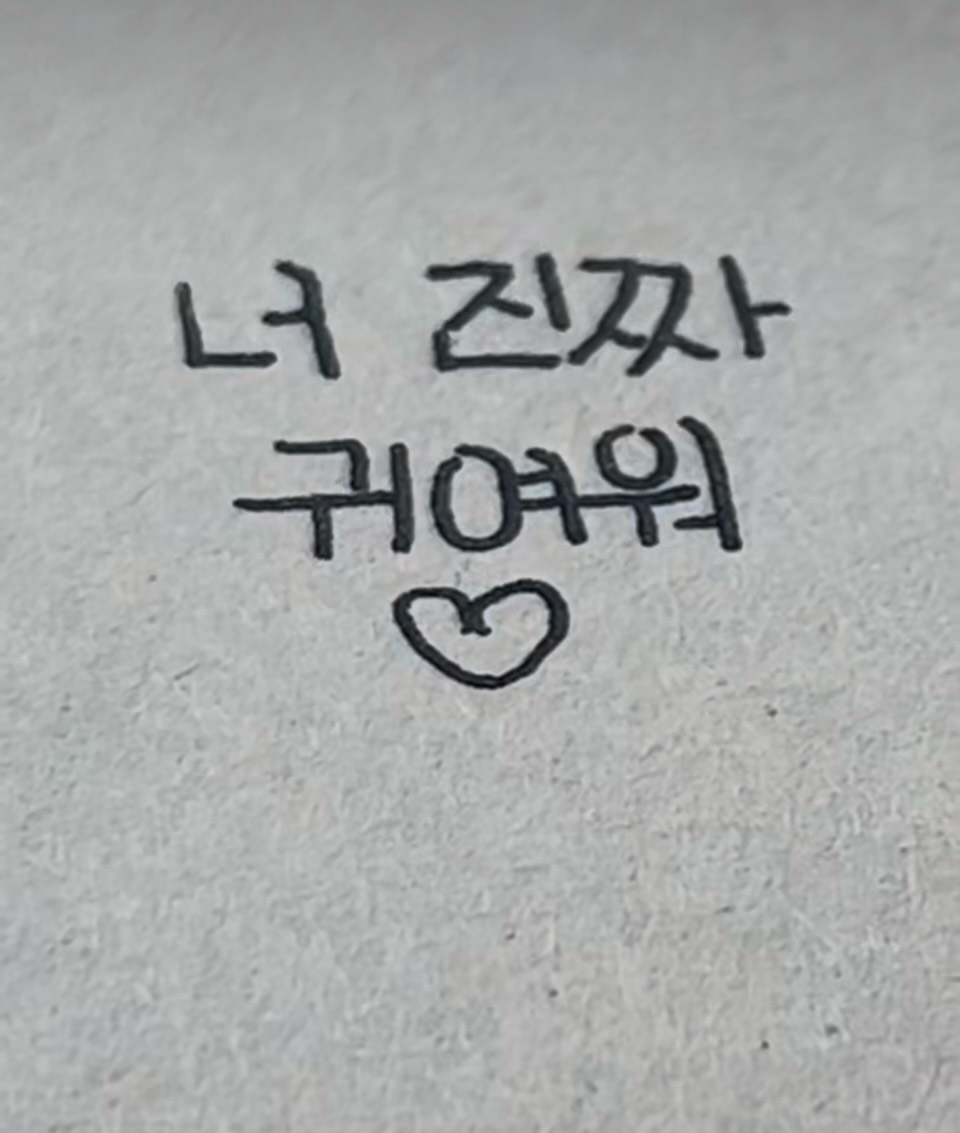 너 진짜
귀여워
♡